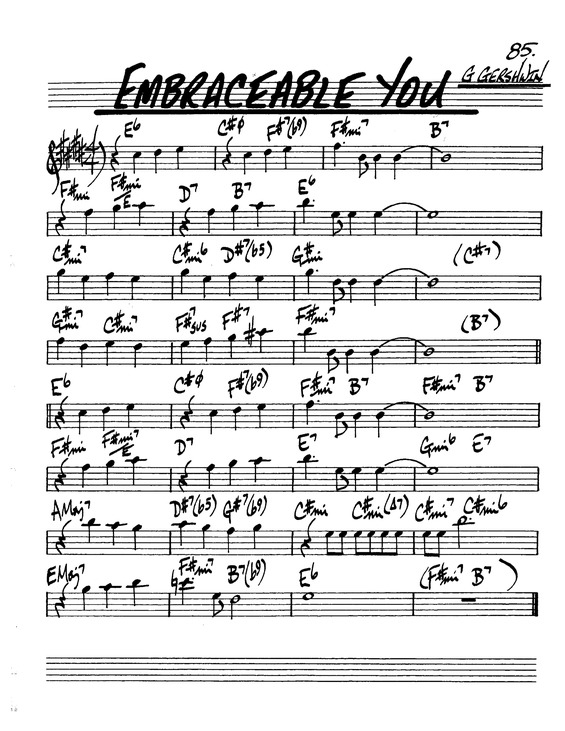 85.
EMBRACEABLE YOU G GERSHWIN
E6 C#ø F#7(b9) F#mi7 B7
F#mi F#mi7/E D7 B7 E6
C#mi7 C#mi6 D#7(b5) G#mi (C#7)
G#mi7 C#mi7 F#7sus F#7 F#mi7 (B7)
E6 C#ø F#7(b9) F#mi7 B7 F#mi7 B7
F#mi F#mi7/E D7 E7 Gmi6 E7
AMaj7 D#7(b5) G#7(b9) C#mi C#mi(Δ7) C#mi7 C#mi6
EMaj7 F#mi7 B7(b9) E6 (F#mi7 B7)